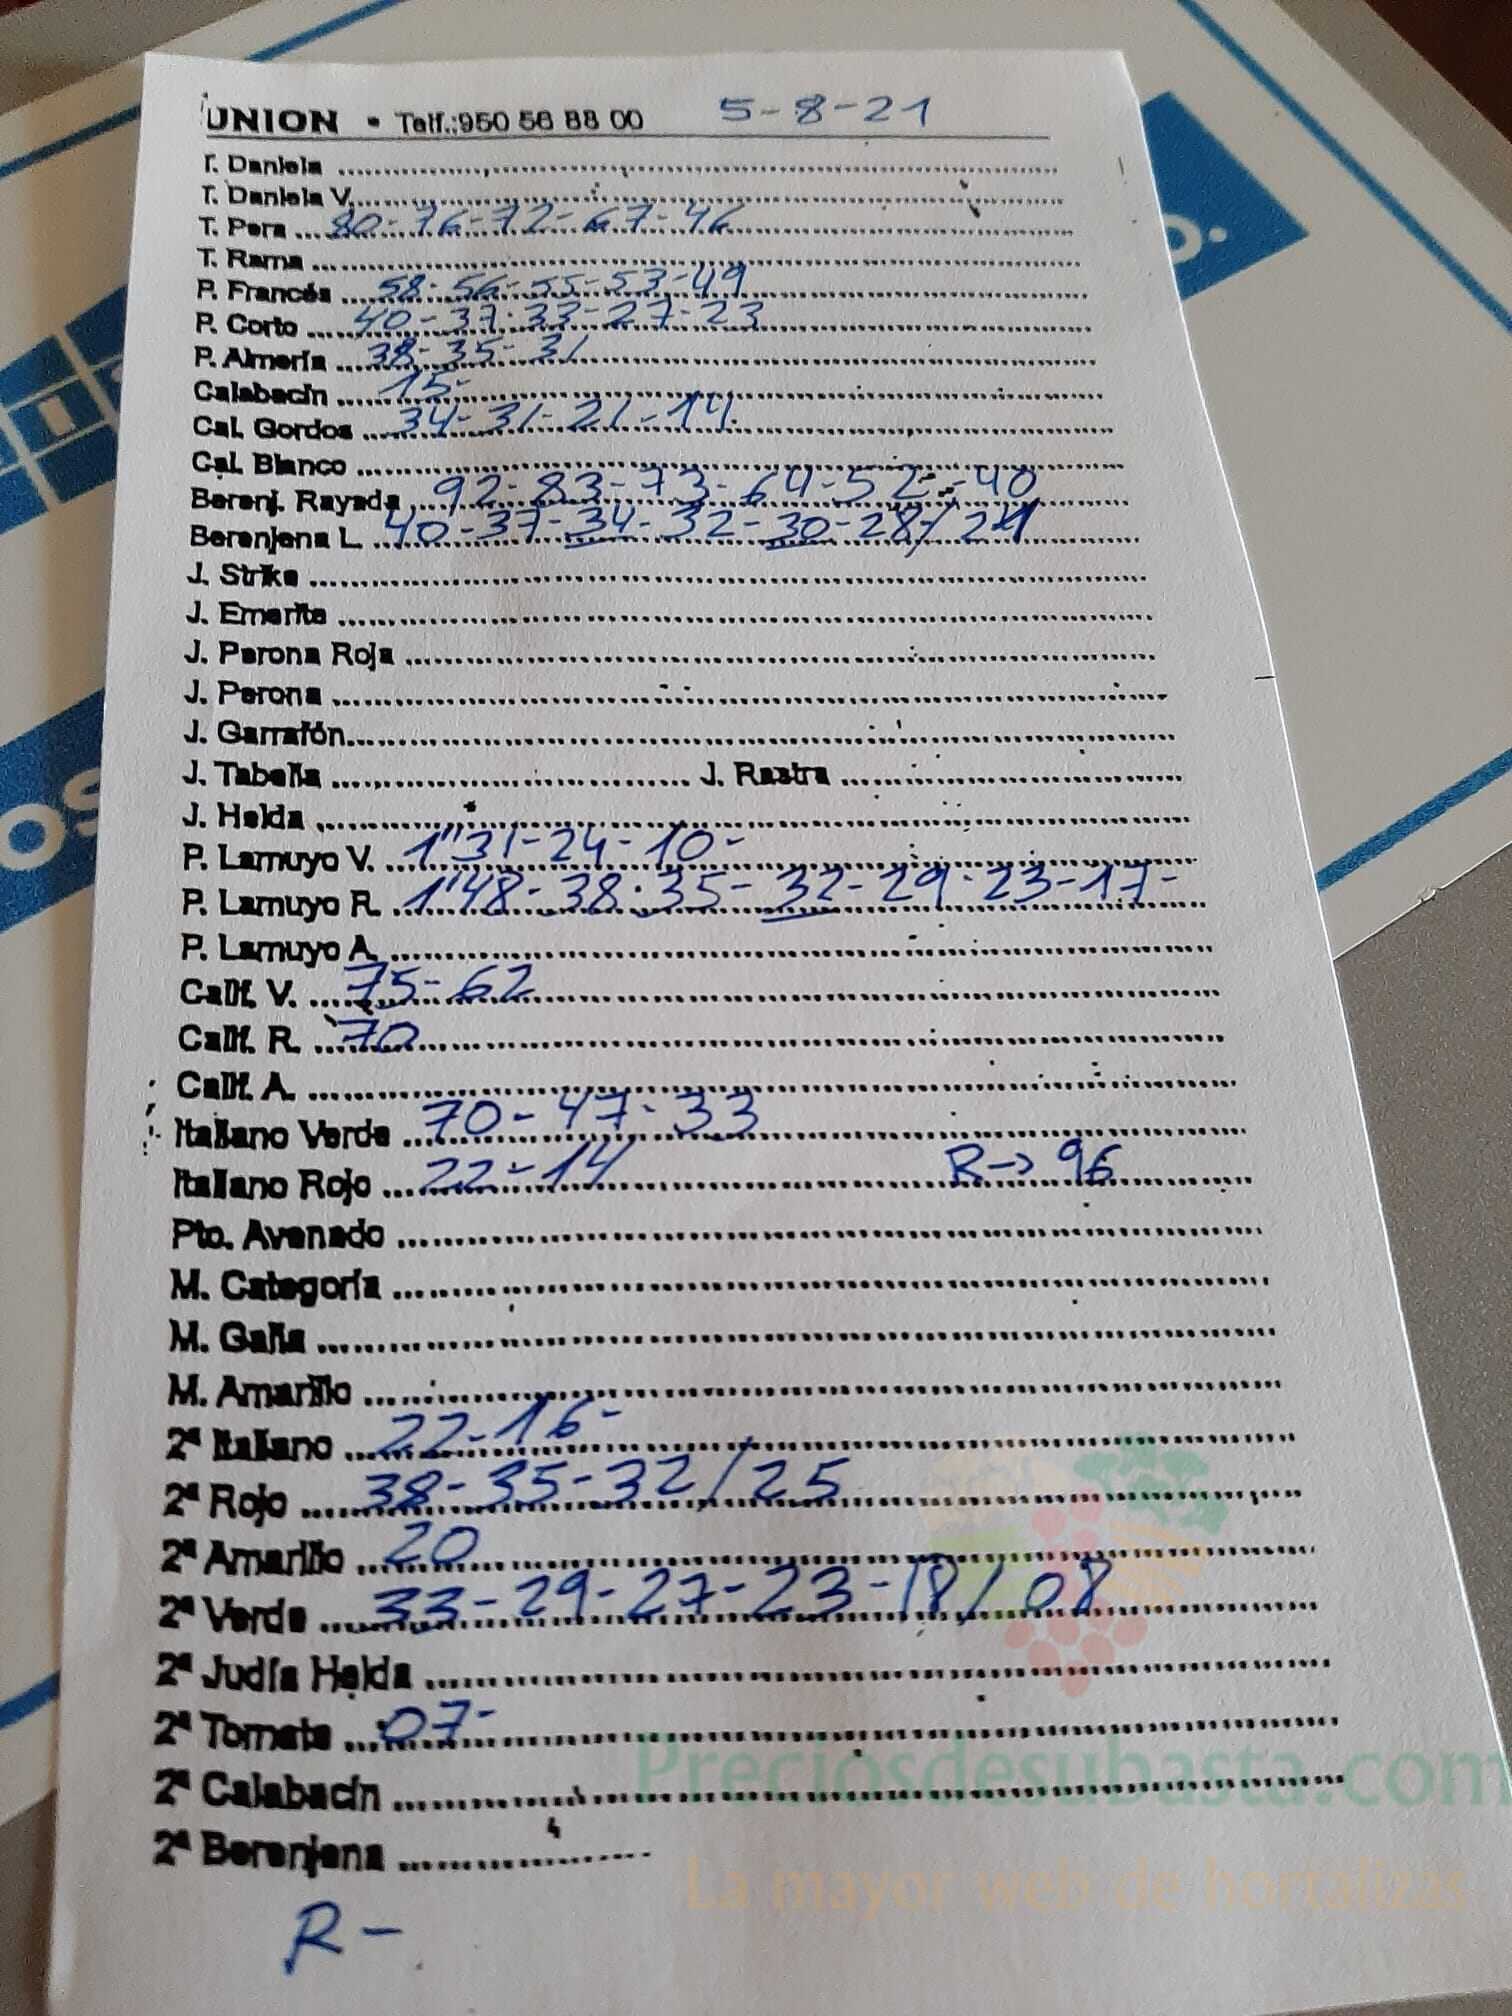 UNION • Telf.:950 56 88 00 5-8-21
T. Daniela
T. Daniela V.
T. Pera 80-76-72-67-46
T. Rama
P. Francés 58-56-55-53-49
P. Corto 40-37-33-27-23
P. Almería 38-35-31
Calabacín 15-
Cal. Gordos 34-31-21-14
Cal. Blanco
Berenj. Rayada 92-83-73-64-52-40
Berenjena L. 40-37-34-32-30-28/
J. Strike
J. Emerite
J. Perona Roja
J. Perona
J. Garrafón
J. Tabella J. Rastra
J. Helda
P. Lamuyo V. 1"31-24-10-
P. Lamuyo R. 1"48-38-35-32-29-23-17-
P. Lamuyo A.
Calif. V. 75-62
Calif. R. 70
Calif. A.
Italiano Verde 70-47-33
Italiano Rojo 22-14 R→96
Pto. Avenado
M. Categoría
M. Galia
M. Amarillo
2ª Italiano 22-16-
2ª Rojo 38-35-32/25
2ª Amarillo 20
2ª Verde 33-29-27-23-18/08
2ª Judía Helda
2ª Tomate 07-
2ª Calabacín
2ª Berenjena
R-
Preciosdesubasta.com
La mayor web de hortalizas